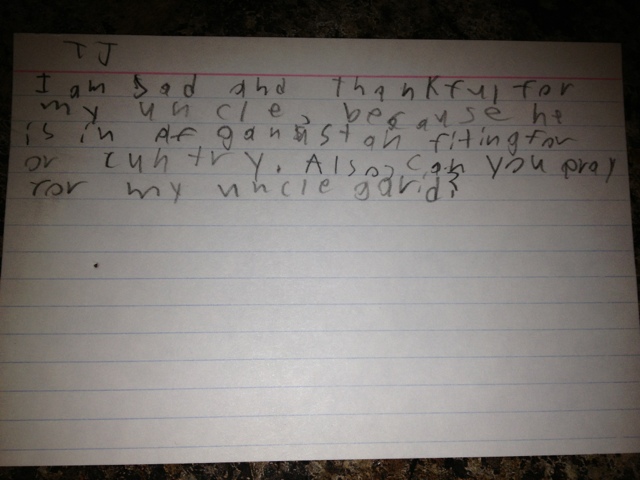 TJ
I am sad and thankful for
my uncle, because he
is in afganastan fiting for
or cuntry. Also, can you pray
for my uncle garid?